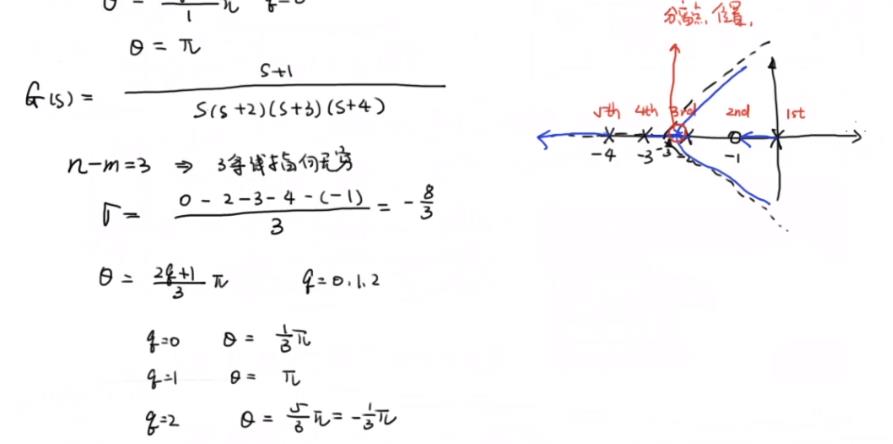 θ = π
G(s) = \frac{s+1}{s(s+2)(s+3)(s+4)}
n-m=3 ⇒ 3条线指向无穷
σ = \frac{0-2-3-4-(-1)}{3} = -\frac{8}{3}
θ = \frac{2q+1}{3}π q=0.1.2
q=0 θ = \frac{1}{3}π
q=1 θ = π
q=2 θ = \frac{5}{3}π = -\frac{1}{3}π
分离点,位置,
5th 4th 3rd 2nd 1st
-4 -3 -2 -1